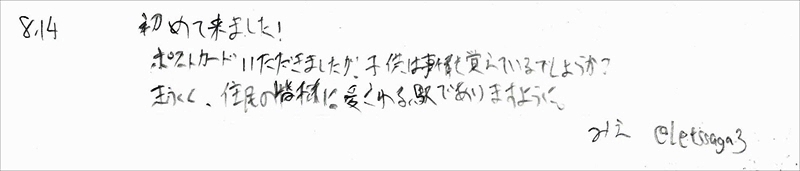 8.14 初めて来ました!
ポストカードいただきましたが、子供は事を覚えているでしょうか?
、住民の皆様に愛される駅でありますように。
みえ @letssaga3